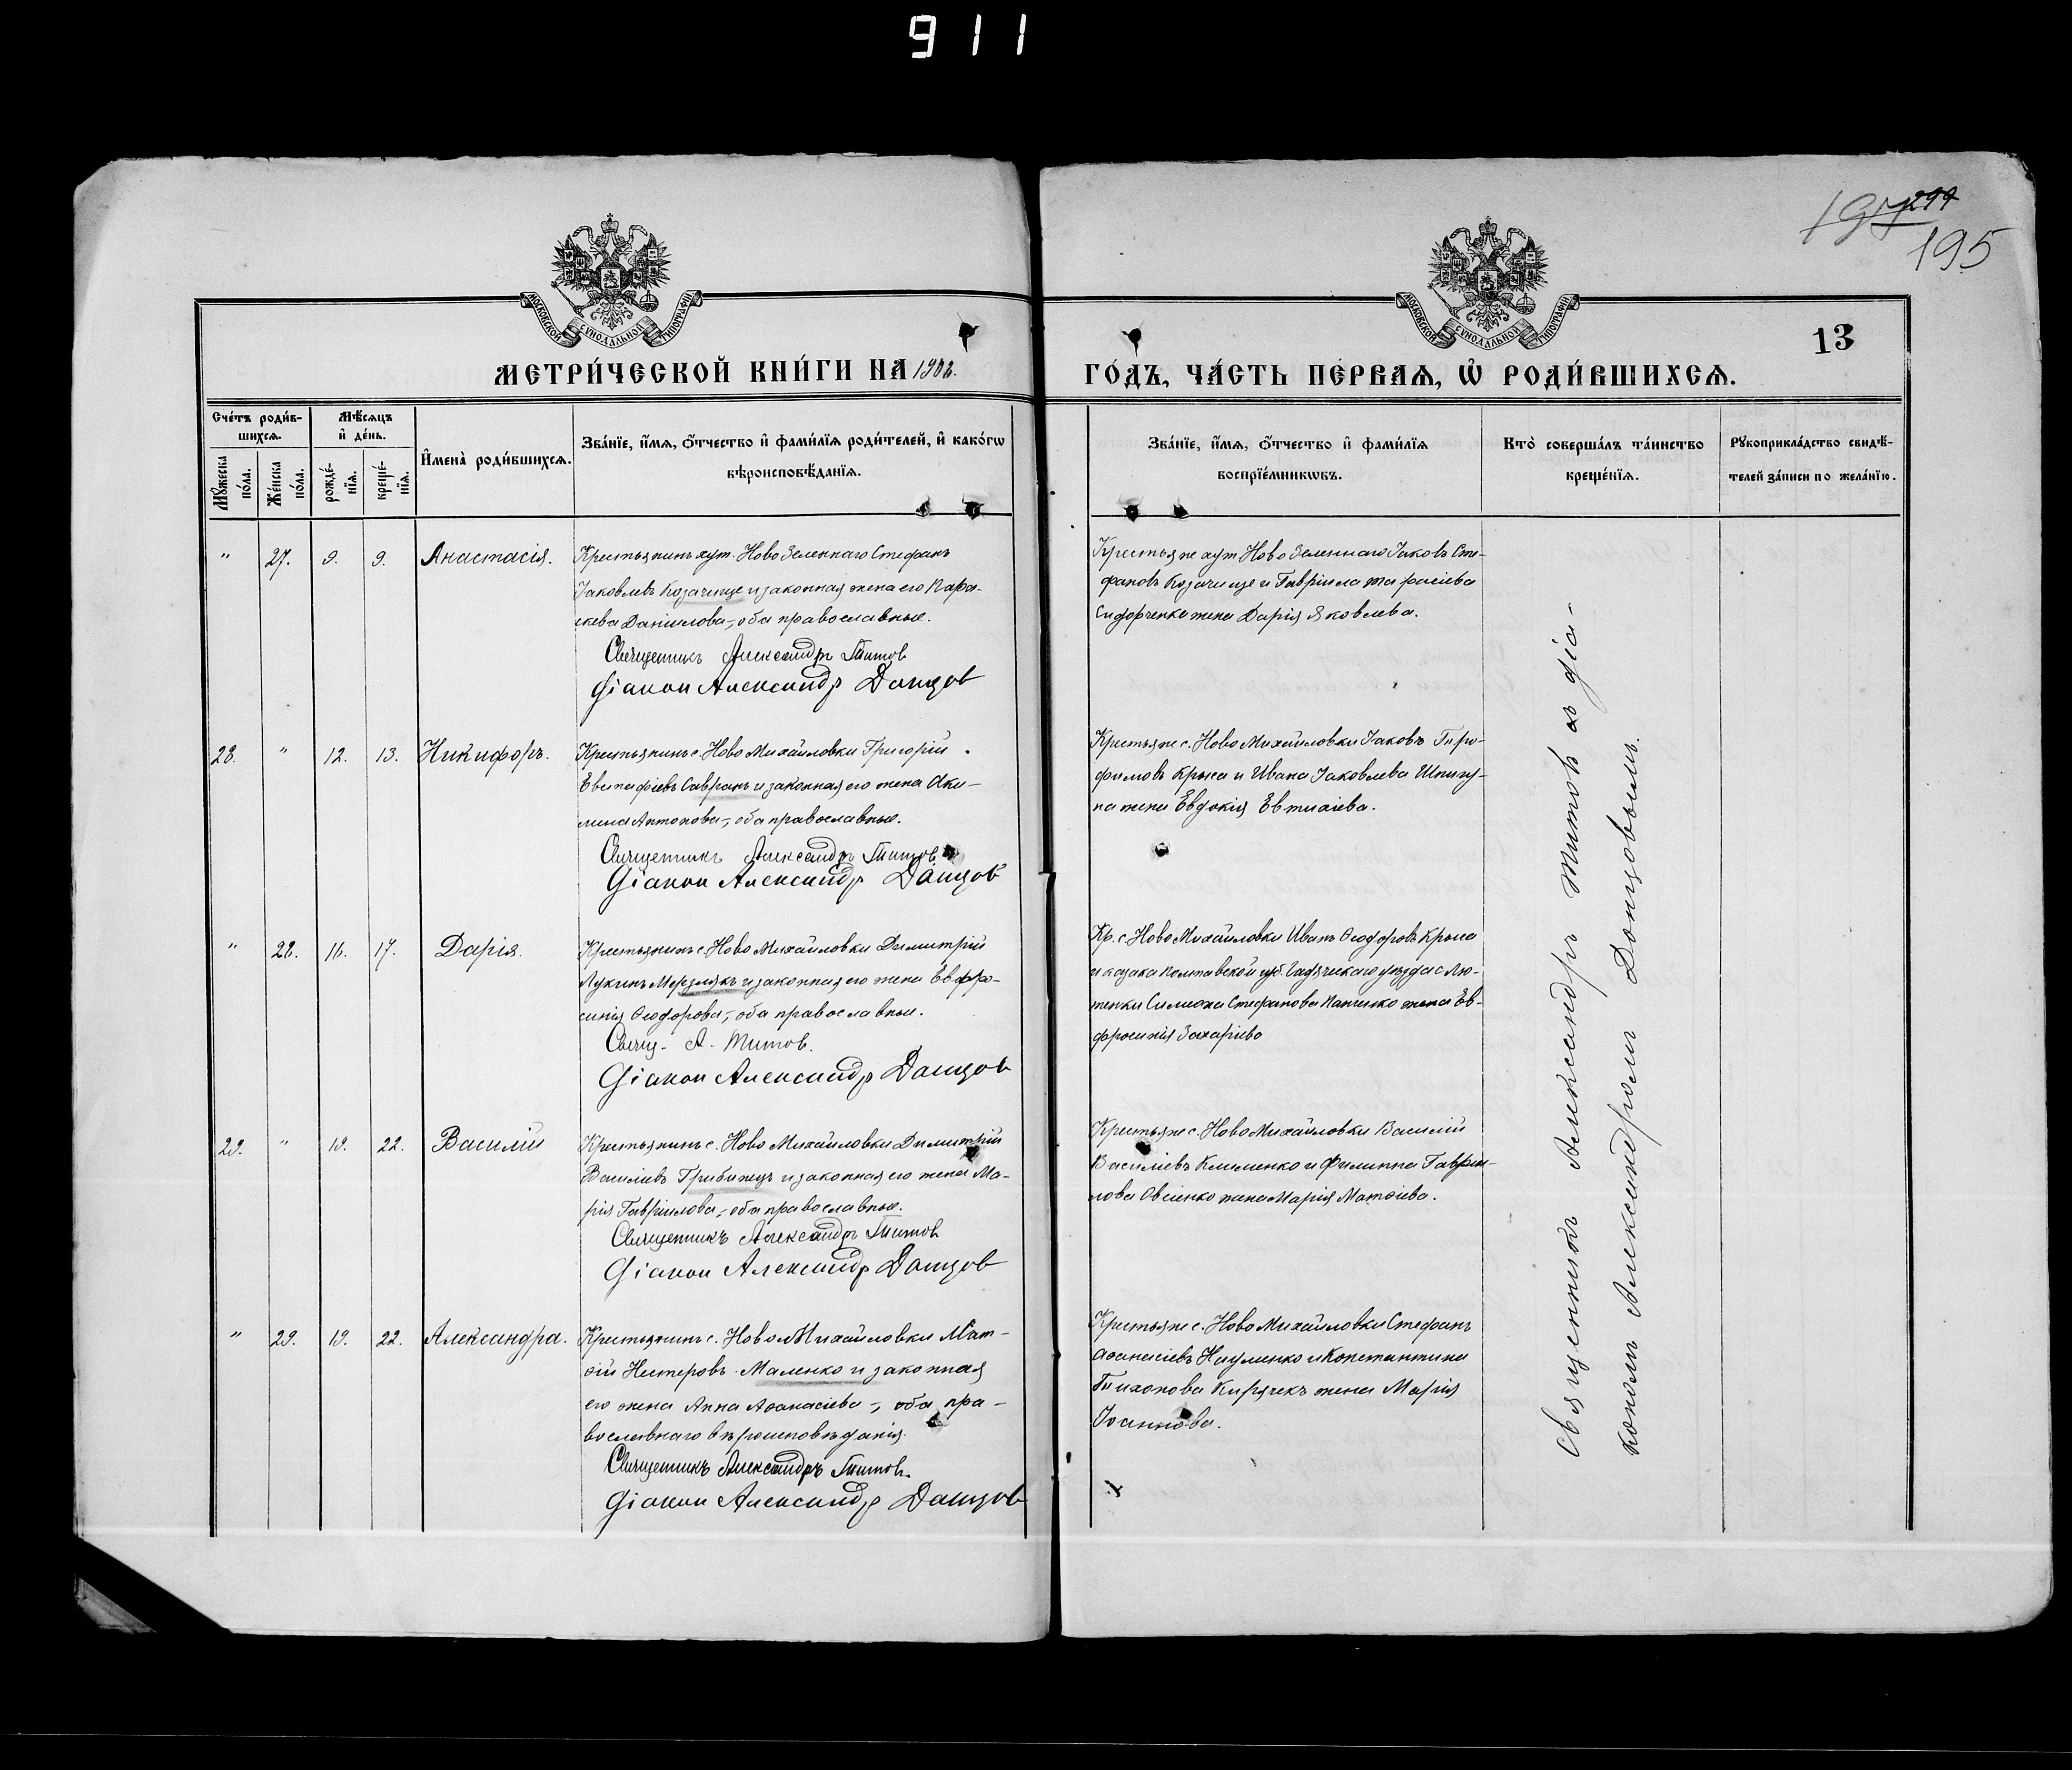 911
197
299
195
МОСКОВСКОЙ СѴНОДАЛЬНОЙ ТИПОГРАФІИ
МОСКОВСКОЙ СѴНОДАЛЬНОЙ ТИПОГРАФІИ
13
МЕТРИ́ЧЕСКОЙ КНИ́ГИ НА
ГО́ДЪ, ЧА́СТЬ ПЕ́РВАЯ, Ѡ РОДИ́ВШИХСЯ.
Сче́тъ роди́в-
шихся.
Мꙋ́жеска по́ла.
Же́нска по́ла.
Мѣ́сяцъ
и҆ де́нь.
рожде́-
нїя.
креще́-
нїя.
И҆мена̀ роди́вшихся.
Зва́нїе, и҆́мя, ѻ҆́тчество и҆ фами́лїя роди́телей, и҆ како́гѡ
вѣроисповѣ́данїя.
Зва́нїе, и҆́мя, ѻ҆́тчество и҆ фами́лїя
воспрїе́мникѡвъ.
Кто̀ соверша́лъ та́инство
креще́нїя.
Рꙋкоприкла́дство свидѣ́-
телей за́писи по жела́нїю.
" 27. 9. 9. Анастасія.
Крестьянинъ хут. Ново Зеленнаго Стефанъ
Іаковлевъ Козачище и законная жена его Пара-
скева Даніилова, оба православные.
Священникъ Александръ Титов
Діакон Александр Донцов
Крестьяне хут Ново Зеленнаго Іаковъ Сте-
фановъ Козачище и Гавріила Тарасіева
Сидорченко жена Дарія Яковлева.
28. " 12. 13. Никифоръ.
Крестьянинъ с. Ново Михайловки Григорій
Савранъ и законная его жена Аки-
лина Антонова, оба православные.
Священникъ Александръ Титов.
Діакон Александр Донцов
Крестьяне с. Ново Михайловки Іаковъ Тро-
фимовъ Крыса и Ивана Іаковлева Шпигу-
на жена Евдокія Евтихіева.
" 28. 16. 17. Дарія.
Крестьянинъ с. Ново Михайловки Димитрій
Лукинъ Мерзлякъ и законная его жена Евфро-
синія Ѳеодорова, оба православные.
Свящ. А. Титов.
Діакон Александр Донцов
Кр. с. Ново Михайловки Иванъ Ѳеодоровъ Крыса
и казака Полтавской губ. Гадячскаго уѣзда с Лю-
теньки Симеона Стефанова Панченко жена Ев-
фросинія Захаріева
29. " 19. 22. Василій
Крестьянинъ с. Ново Михайловки Димитрій
Василіевъ Грибинецъ и законная его жена Ма-
рія Гавріилова, оба православные.
Священникъ Александръ Титов
Діакон Александр Донцов
Крестьяне с. Ново Михайловки Василій
Василіевъ Клименко и Филиппа Гаврiи-
лова Овсіенко жена Марія Матѳіева.
" 29. 19. 22. Александра.
Крестьянинъ с. Ново Михайловки Мат-
ѳій Нестеровъ Маленко и законная
его жена Анна Аѳанасіева, оба пра-
вославнаго вѣроисповѣданія.
Священникъ Александръ Титов.
Діакон Александр Донцов
Крестьяне с. Ново Михайловки Стефанъ
Аѳанасіевъ Науменко и Константина
Тихонова Кирячекъ жена Марія
Іоаннова.
Священникъ Александръ Титовъ съ діа-
кономъ Александромъ Донцовымъ.